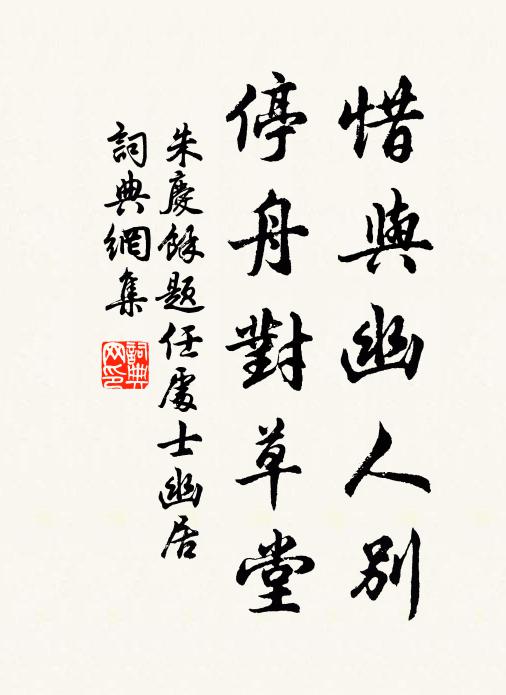 惜與幽人別
停舟對草堂
朱慶餘題任處士幽居
詞典網集
詞典網印